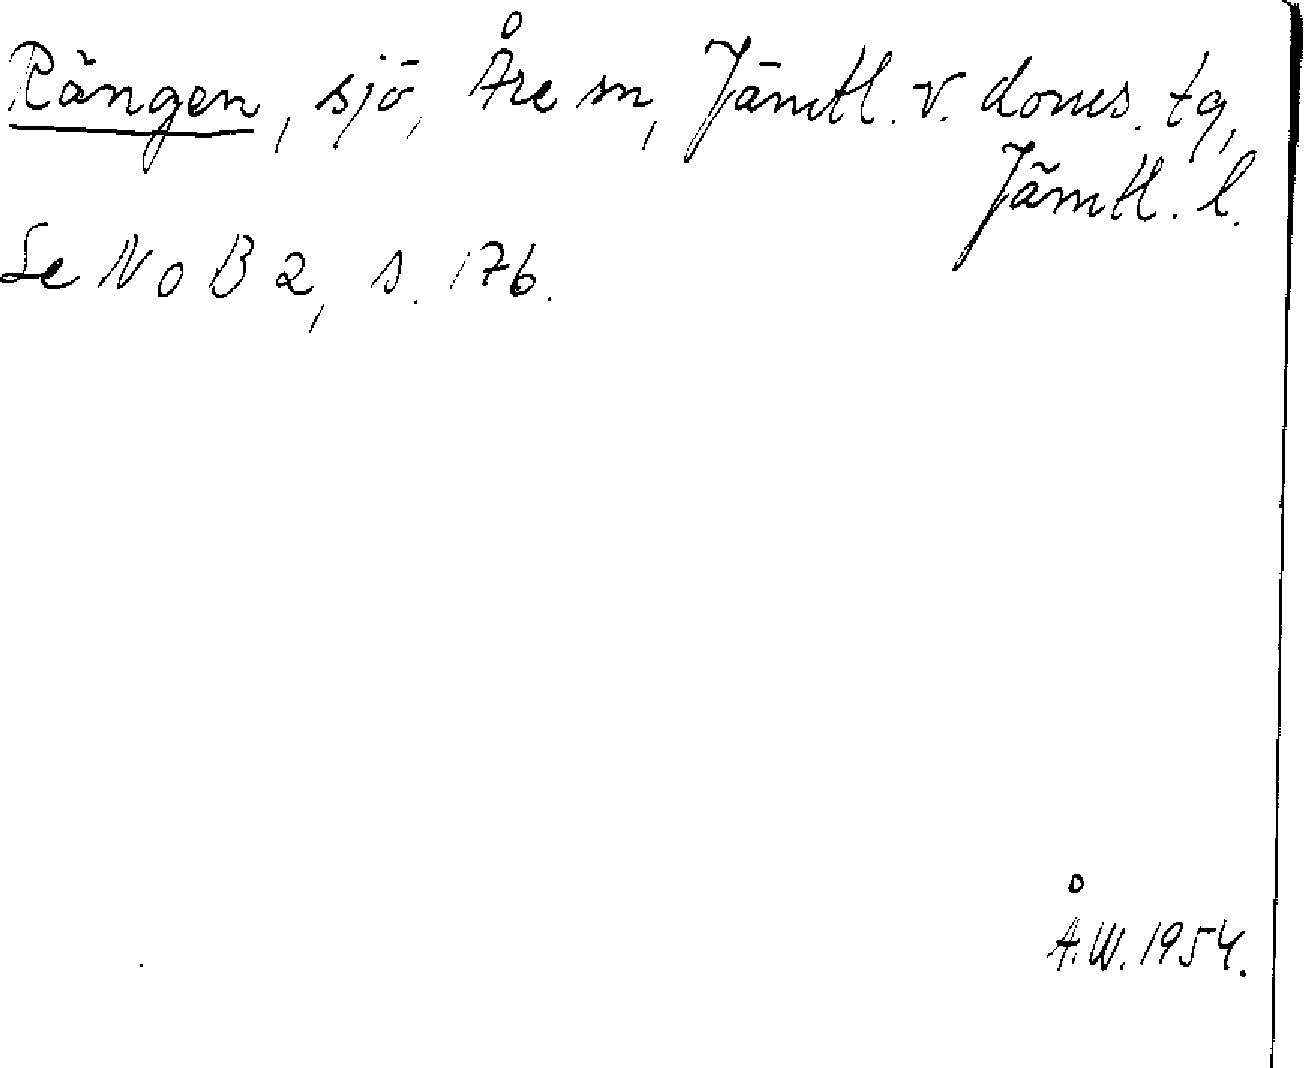 Rängen, sjö, Åre sn, Jämtl. v. doms. tg,
Jämtl. l.
Se N o B 2, s. 176.
Å.W. 1954.